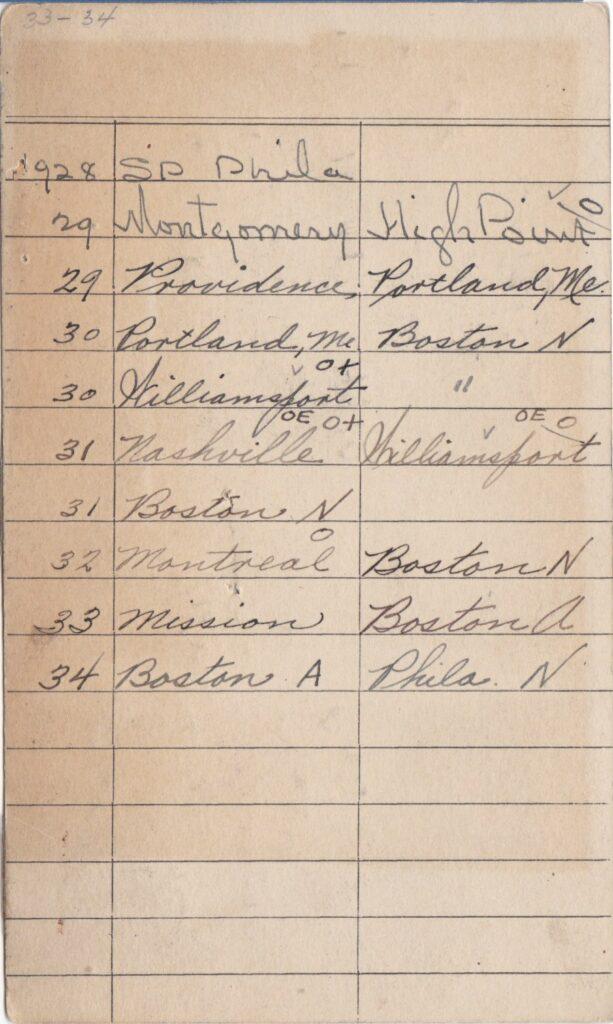 33-34
1928 SP Phila
29 Montgomery High Point ✓ 10
29 Providence, Portland, Me.
30 Portland, Me. Boston N
30 Williamsport ✓ O+ "
31 Nashville OE O+ Williamsport ✓ OE O
31 Boston N
32 Montreal O Boston N
33 Mission Boston A
34 Boston A Phila. N